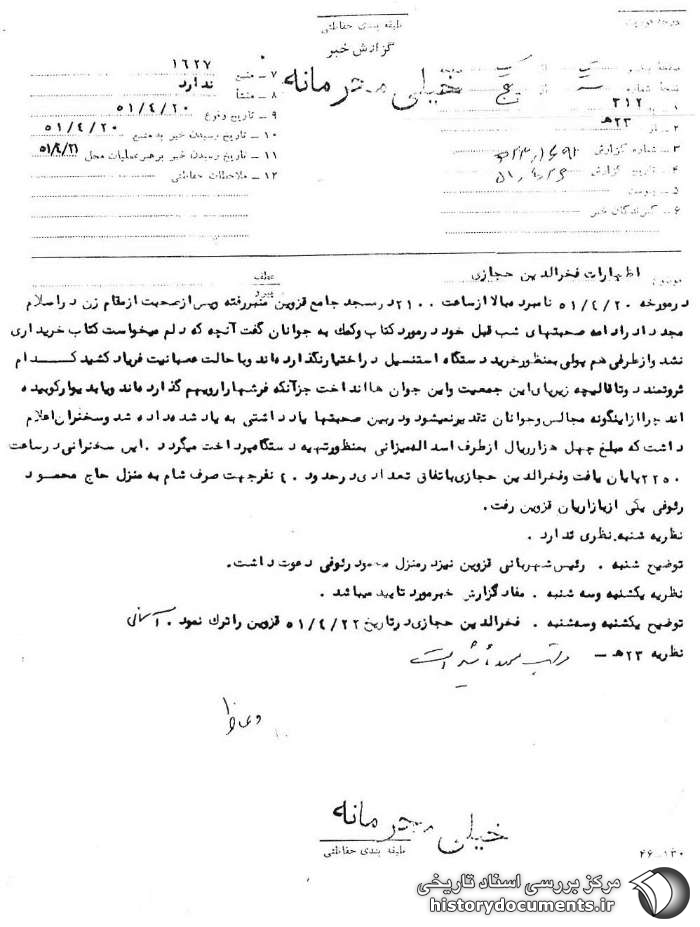 طبقه بندی حفاظتی
گزارش خبر
خیلی محرمانه
۱ – به ۳۱۲
۲ – از ۲۳هـ
۳ – شماره گزارش
۴ – تاریخ گزارش
۵ – پیوست
۶ – گیرندگان خبر
۷ – منبع ۱۶۲۷
۸ – منشأ ندارد
۹ – تاریخ وقوع ۵۱/۴/۲۰
۱۰ – تاریخ رسیدن خبر به منبع ۵۱/۴/۲۰
۱۱ – تاریخ رسیدن خبر برهبر عملیات محل ۵۱/۴/۲۱
۱۲ – ملاحظات حفاظتی
موضوع : اظهارات فخرالدین حجازی
عطف
پیرو
درمورخه ۵۱/۴/۲۰ نامبرد مبالا ازساعت ۲۱۰۰ درمسجد جامع قزوین منبررفته وپس ازصحبت ازمقام زن دراسلام
مجد دادرادامه صحبتهای شب قبل خود درمورد کتاب وکمک به جوانان گفت آنچه که دلم میخواست کتاب خریداری
نشد وازطرفی هم پولی بمنظورخرید دستگاه استنسیل دراختیارنگذارد ه‌اند وباحالت عصبانیت فریاد کشید کدام
ثروتمند دوتاقالیچه زیرپای این جمعیت واین جوان هاانداخت جزآنکه فرشهاراروبهم گذارد ه‌اند ویابدیوارکوبیده
اند چراازاینگونه مجالس وجوانان تقدیرنمیشود ودربین صحبتها یادداشتی به یاد شده داده شد وسخنران اعلام
داشت که مبلغ چهل هزارریال ازطرف اسدالله میزانی بمنظورتهیه دستگاه پرداخت میگردد . این سخنرانی درساعت
۲۲۵۰ پایان یافت وفخرالدین حجازی باتفاق تعدادی درحدود ۴۰ نفرجهت صرف شام به منزل حاج محمود
رئوفی یکی ازبازاریان قزوین رفت.
نظریه شنبه. نظری ندارد .
توضیح شنبه . رئیس شهربانی قزوین نیزدرمنزل محمود رئوفی دعوت داشت.
نظریه یکشنبه وسه شنبه . مفاد گزارش خبرمورد تایید میباشد .
توضیح یکشنبه وسه‌شنبه . فخرالدین حجازی درتاریخ ۵۱/۴/۲۲ قزوین راترک نمود . آسمانی
نظریه ۲۳هـ –
خیلی محرمانه
طبقه بندی حفاظتی
۴۶-۱۳۰
مرکز بررسی اسناد تاریخی
historydocuments.ir